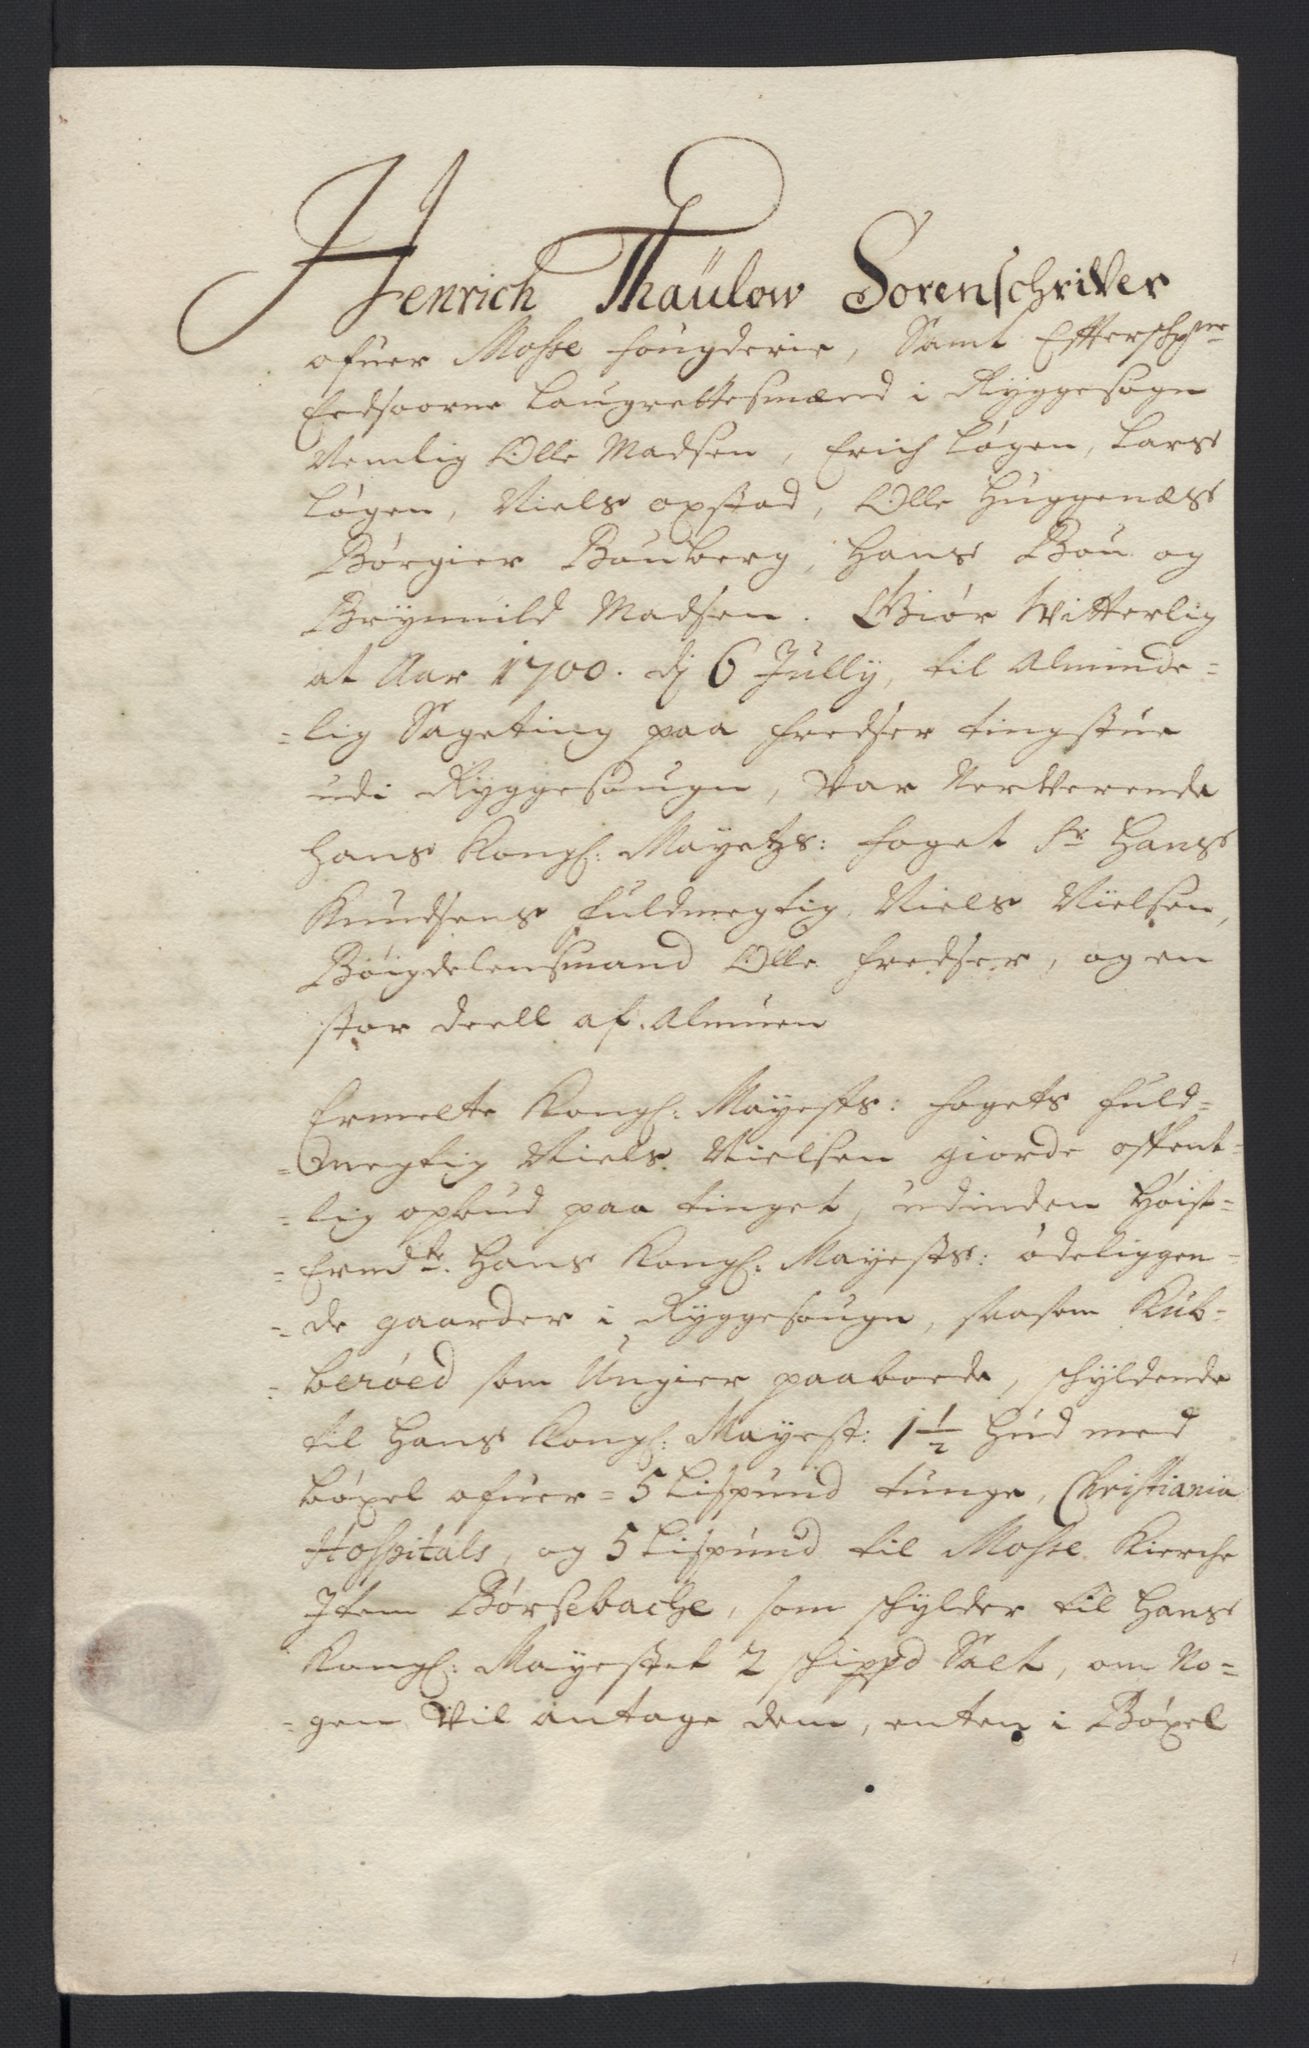 Henrich Thaulow Sorenschriver
ofuer Mosse fougderie, Samt Effterschr:ne
Eedsoorne Laugrettesmænd i Ryggesogn
Nemlig Olle Madsen, Erich Løgen, Lars
Løgen, Niels opstad, Olle Huggenæs
Børgier Bouberg, Hans Bou og
Brynnild Madsen. Giør Vitterlig
at Aar 1700. dj 6 Jully, til Alminde=
=lig Sageting paa Fredser tingstue
udi Ryggesougn, Var Nerverende
Hans Kongl: Mayetzs: foget Sr Hans
Knudsens fuldmegtig, Niels Nielsen,
Bøigdelensmand Olle Fredser, og en
stor deell af Almuen
Ermelte Kongl: Mayests: fogets fuld=
=megtig Niels Nielsen giorde offent=
=lig opbud paa tinget, udinden Høist=
=bemdte. Hans Kongl: Mayests: ødeliggen=
=de gaarder i Ryggesougn, saasom Kub=
=berøed som Ungier paaboede, schyldende
til Hans Kongl: Mayest: 1½ Hud med
bøxel ofuer = 5 Lispund tunge, Christiania
Hospitals, og 5 Lispund til Mosse Kierche
Item Børsebache, som schylder til Hans
Kongl: Mayestet 2 schippd Salt, om No=
=gen Vil antage dem, enten i Bøxel